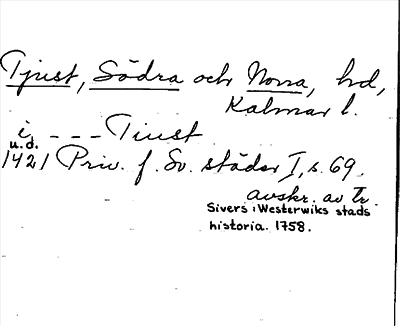 Tjust, Södra och Norra, hd,
Kalmar l.
i - - - Tiust
u.d.
1421 Priv. f. Sv. städer I, s. 69.
avskr. av Tr.
Sivers i Westerwiks stads
historia. 1758.